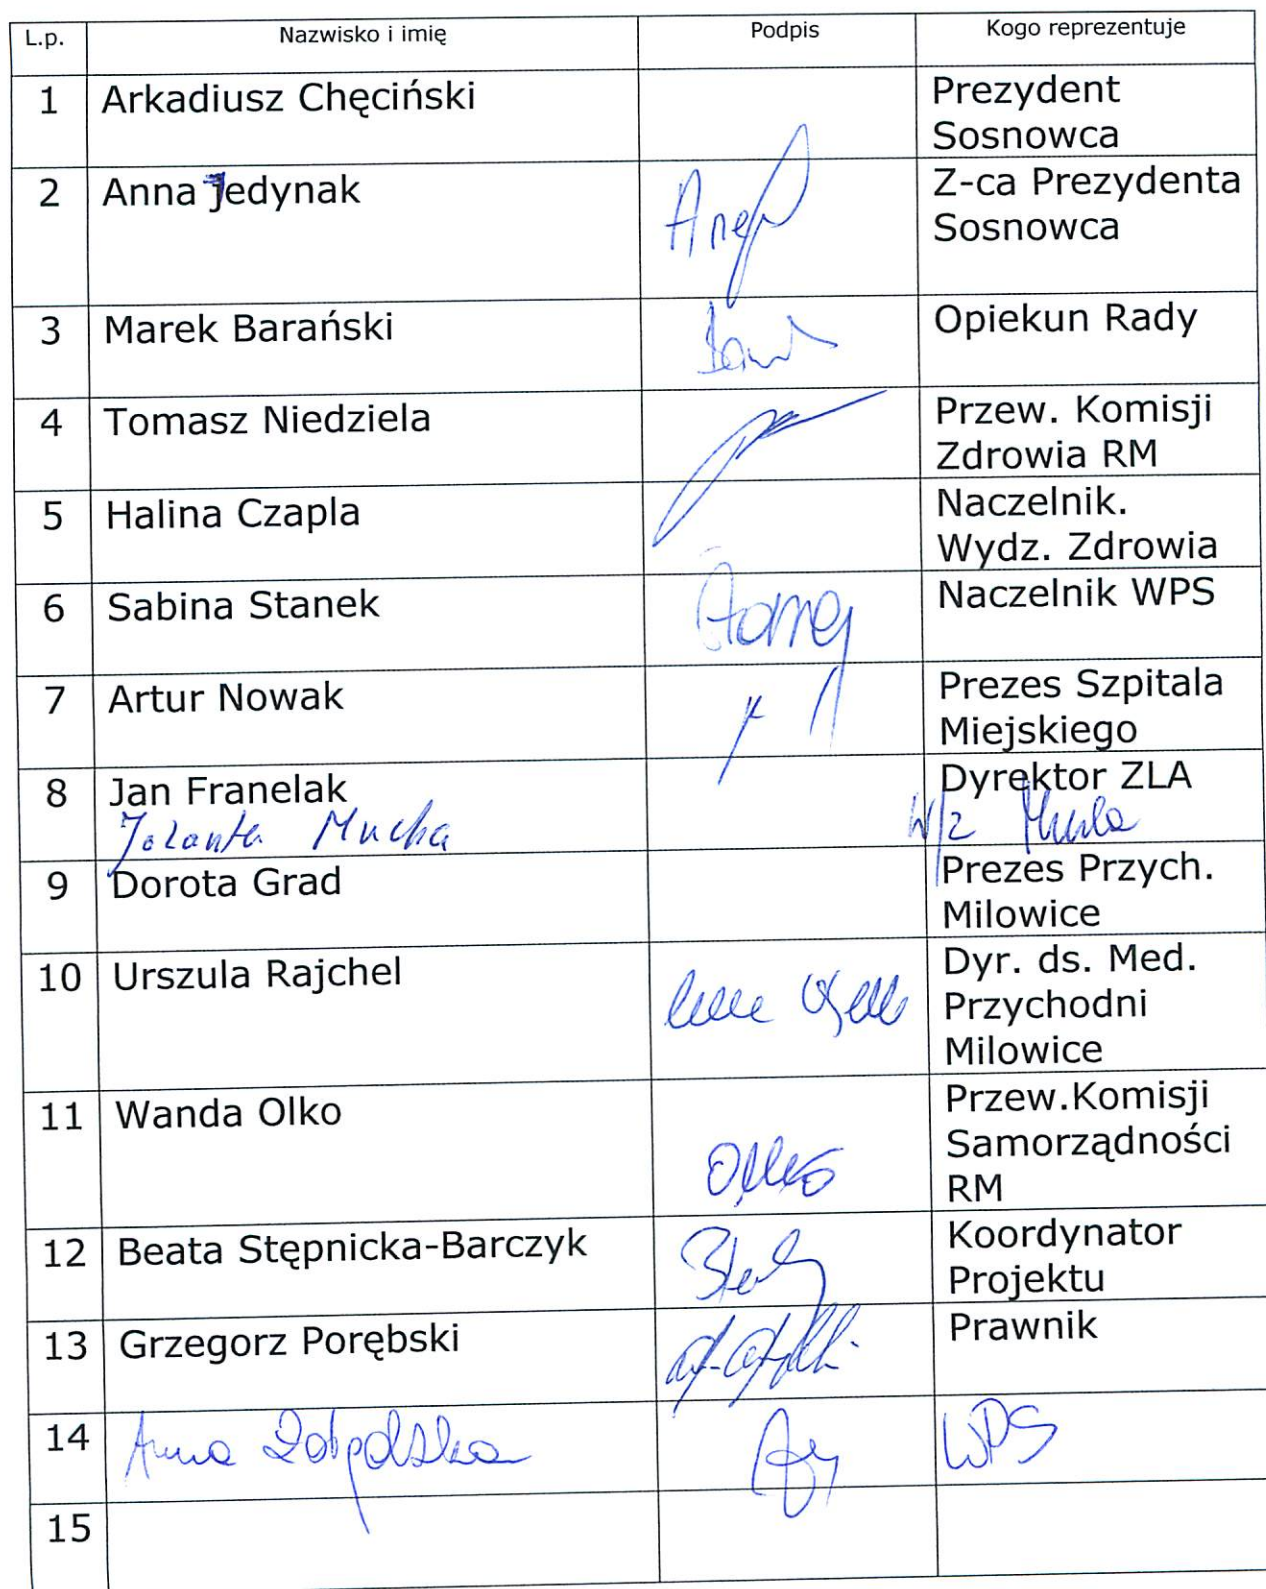 L.p. Nazwisko i imię Podpis Kogo reprezentuje
1 Arkadiusz Chęciński Prezydent
Sosnowca
2 Anna Jedynak Z-ca Prezydenta
Sosnowca
3 Marek Barański Opiekun Rady
4 Tomasz Niedziela Przew. Komisji
Zdrowia RM
5 Halina Czapla Naczelnik.
Wydz. Zdrowia
6 Sabina Stanek Naczelnik WPS
7 Artur Nowak Prezes Szpitala
Miejskiego
8 Jan Franelak Dyrektor ZLA
Jolanta Mucha W/z Mucha
9 Dorota Grad Prezes Przych.
Milowice
10 Urszula Rajchel Dyr. ds. Med.
Przychodni
Milowice
11 Wanda Olko Przew.Komisji
Samorządności
Olko RM
12 Beata Stępnicka-Barczyk Koordynator
Projektu
13 Grzegorz Porębski Prawnik
14 Anna WPS
15